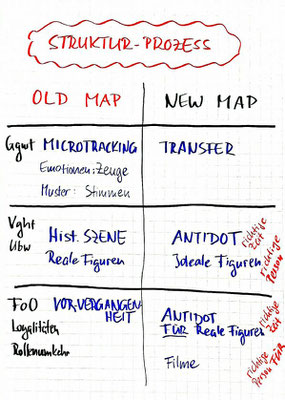 STRUKTUR-PROZESS
OLD MAP
NEW MAP
Ggwt
MICROTRACKING
Emotionen: Zeuge
Muster: Stimmen
TRANSFER
Vght
Ubw
Hist. SZENE
Reale Figuren
ANTIDOT
Ideale Figuren
richtige
Zeit
richtige
Person
FoO
Loyalitäten
Rollenumkehr
VORVERGANGEN-
HEIT
ANTIDOT
FÜR Reale Figuren
Filme
richtige
Zeit
richtige
Person FÜR